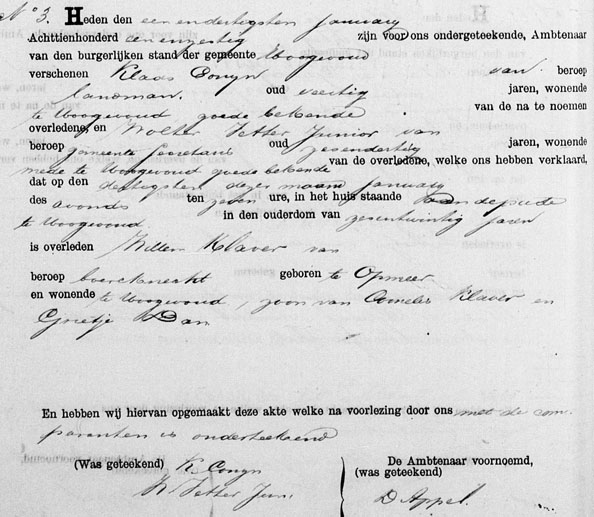 No 3. Heden den een en dertigsten january
Achttienhonderd een en zestig zijn voor ons ondergeteekende, Ambtenaar
van den burgerlijken stand der gemeente Hoogwoud
verschenen Klaas Conyn van beroep
landman. oud veertig jaren, wonende
te Hoogwoud goede bekende van de na te noemen
overledene, en Wolter Vetter Junior van
beroep gemeente secretaris oud zesendertig jaren, wonende
mede te Hoogwoud goede bekende van de overledene, welke ons hebben verklaard,
dat op den dertigsten dezer maand January
des avonds ten zeven ure, in het huis staande
te Hoogwoud in den ouderdom van zesentwintig jaren
is overleden Willem Klaver van
beroep boereknecht geboren te Opmeer
en wonende te Hoogwoud, zoon van Cornelis Klaver en
Grietje Dan
En hebben wij hiervan opgemaakt deze akte welke na voorlezing door ons met de com-
paranten is onderteekend
(Was geteekend) K. Conyn
Vetter Jun.
De Ambtenaar voornoemd,
(was geteekend)
D Appel.